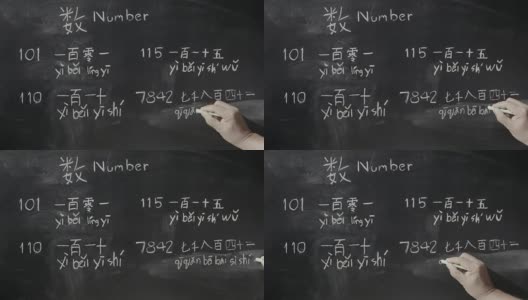 数 Number
101 一百零一 115 一百一十五
yì bǎi líng yī yì bǎi yī shí wǔ
110 一百一十 7842 七千八百四十二
yì bǎi yī shí qīqiān
数 Number
101 一百零一 115 一百一十五
yì bǎi líng yī yì bǎi yī shí wǔ
110 一百一十 7842 七千八百四十二
yì bǎi yī shí qīqiān bā bǎi
数 Number
101 一百零一 115 一百一十五
yì bǎi líng yī yì bǎi yī shí wǔ
110 一百一十 7842 七千八百四十二
yì bǎi yī shí qīqiān bā bǎi sì shí
数 Number
101 一百零一 115 一百一十五
yì bǎi líng yī yì bǎi yī shí wǔ
110 一百一十 7842 七千八百四十二
yì bǎi yī shí